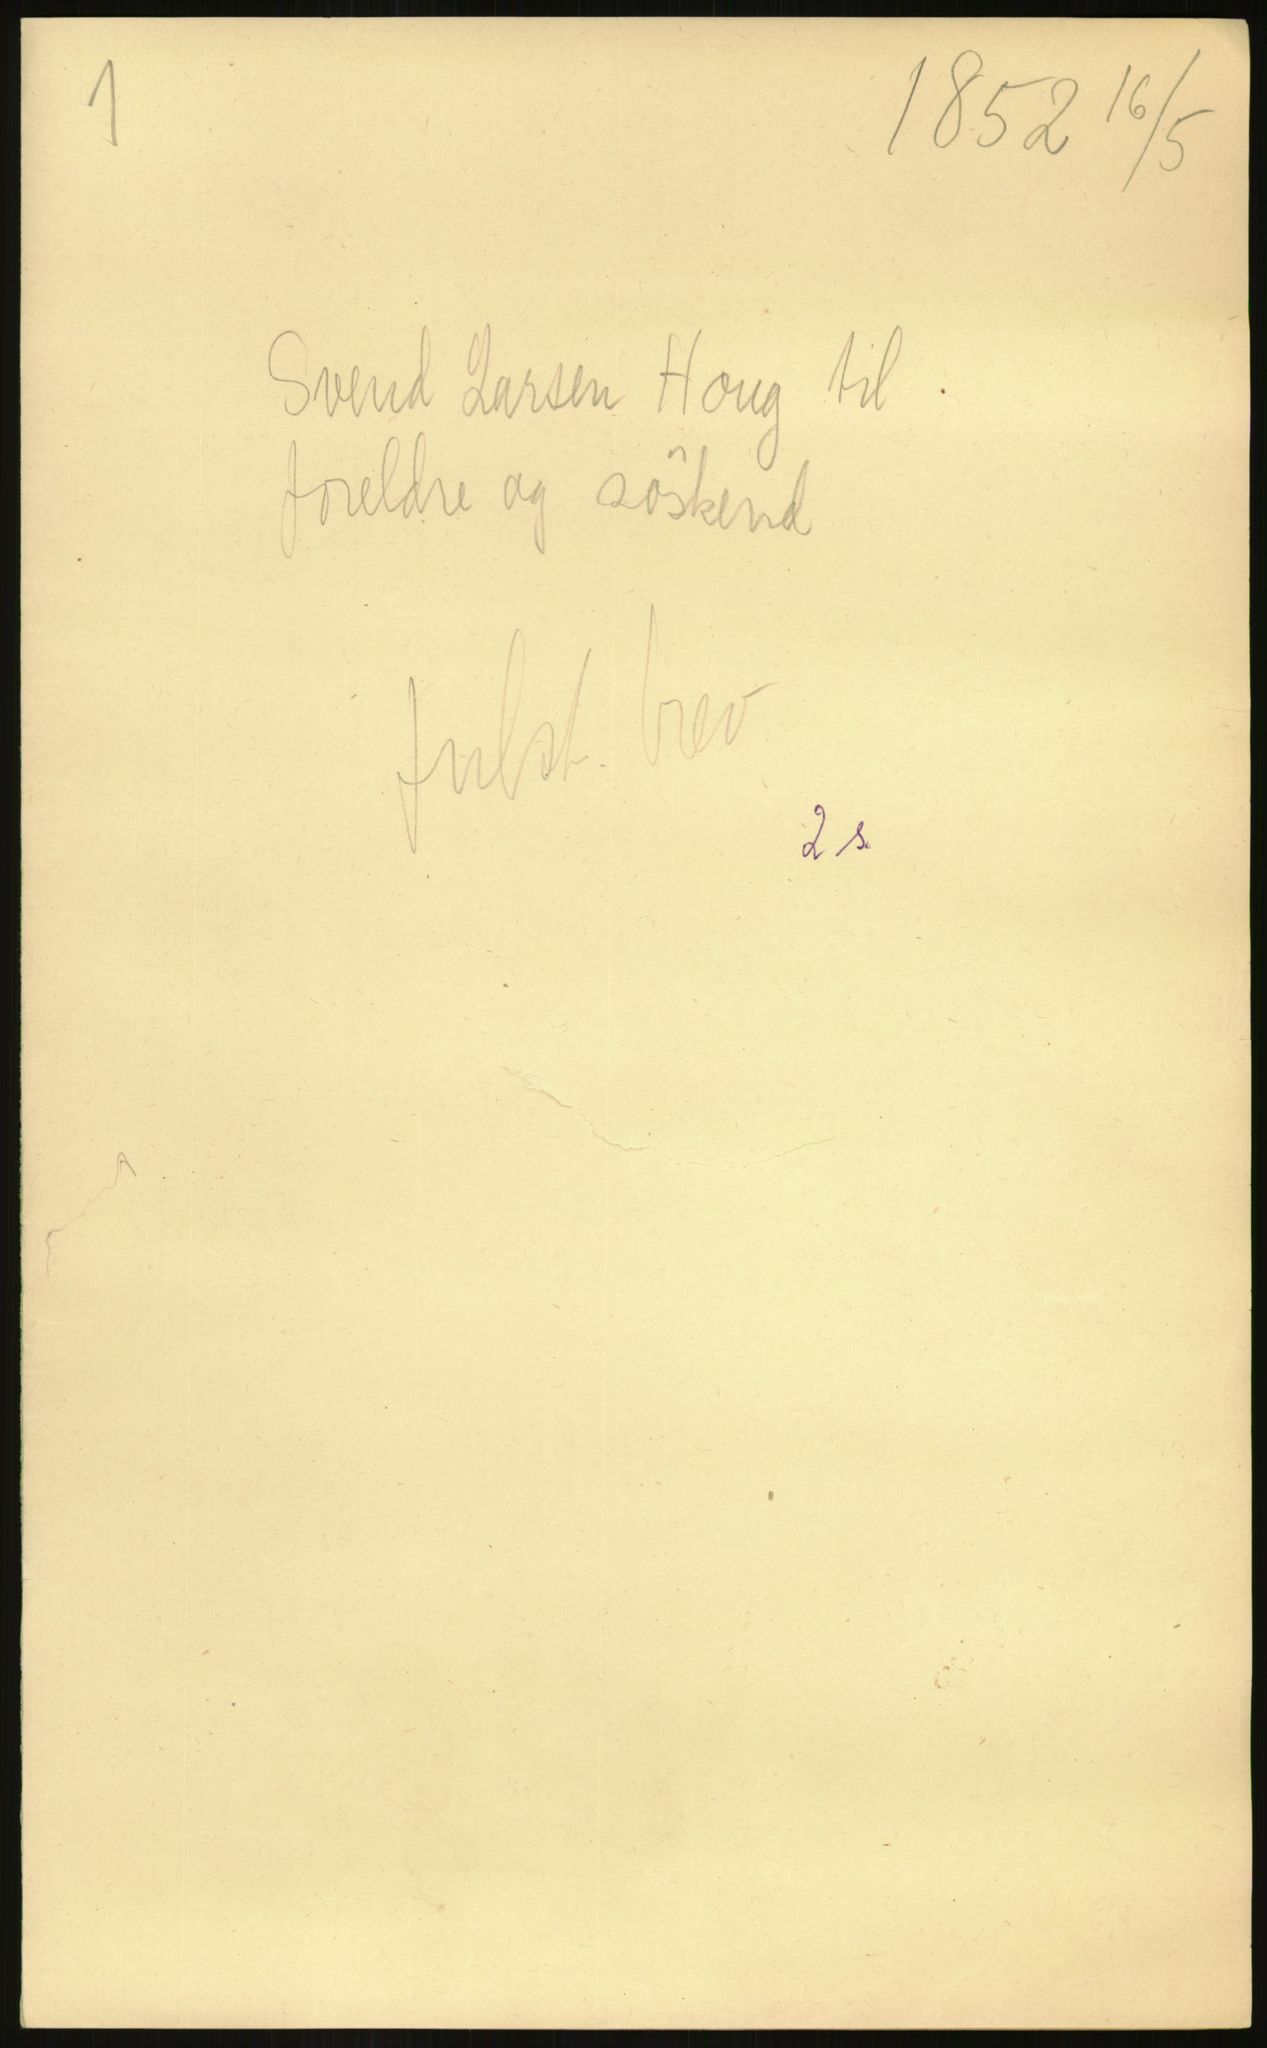 1
1852 16/5
Svend Larsen Houg til
foreldre og söskend
fulst. brev
2 s.